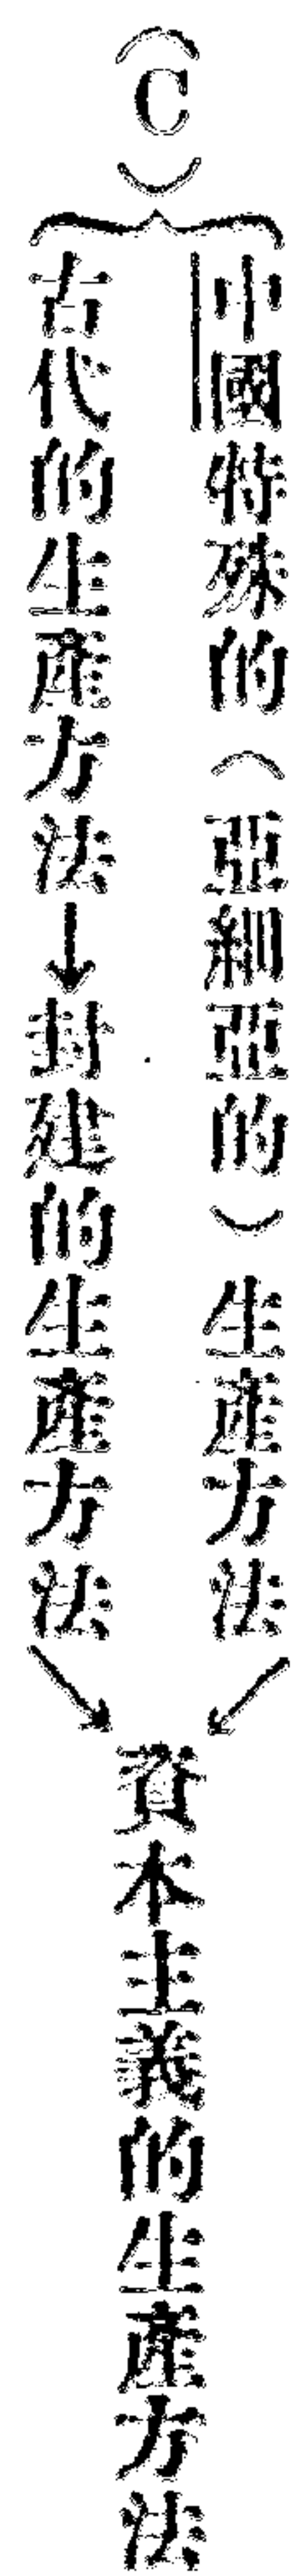 （C）
中國特殊的（亞細亞的）生產方法
古代的生產方法→封建的生產方法
資本主義的生產方法